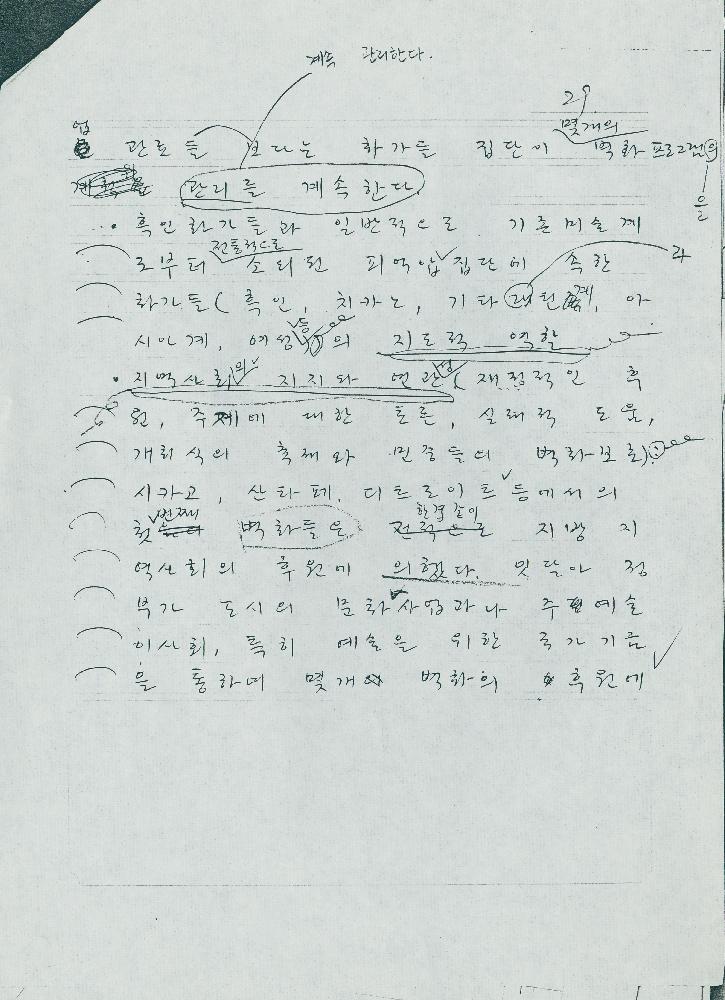 계속 관리한다.
29
업 몇개의
관료들 보다는 화가들 집단이 벽화프로그램의
을 관리를 계속한다 을
· 흑인화가들과 일반적으로 기존미술계
전통적으로
로부터 소외된 피억압집단에 속한 라
화가들(흑인, 치카노, 기타 래틴계, 아
등
시아계, 여성)의 지도적 역할
· 지역사회의 지지와 연관성(재정적인 후
원, 주제에 대한 토론, 실제적 도움,
개회식의 축제와 민중들의 벽화보호):
시카고, 산타페, 디트로이트 등에서의
번째 한결같이
첫 벽화들은 전적으로 지방 지
역사회의 후원에 의했다. 잇달아 정
부가 도시의 문화사업과나 주립예술
이사회, 특히 예술을 위한 국가기금
을 통하여 몇개의 벽화의 후원에